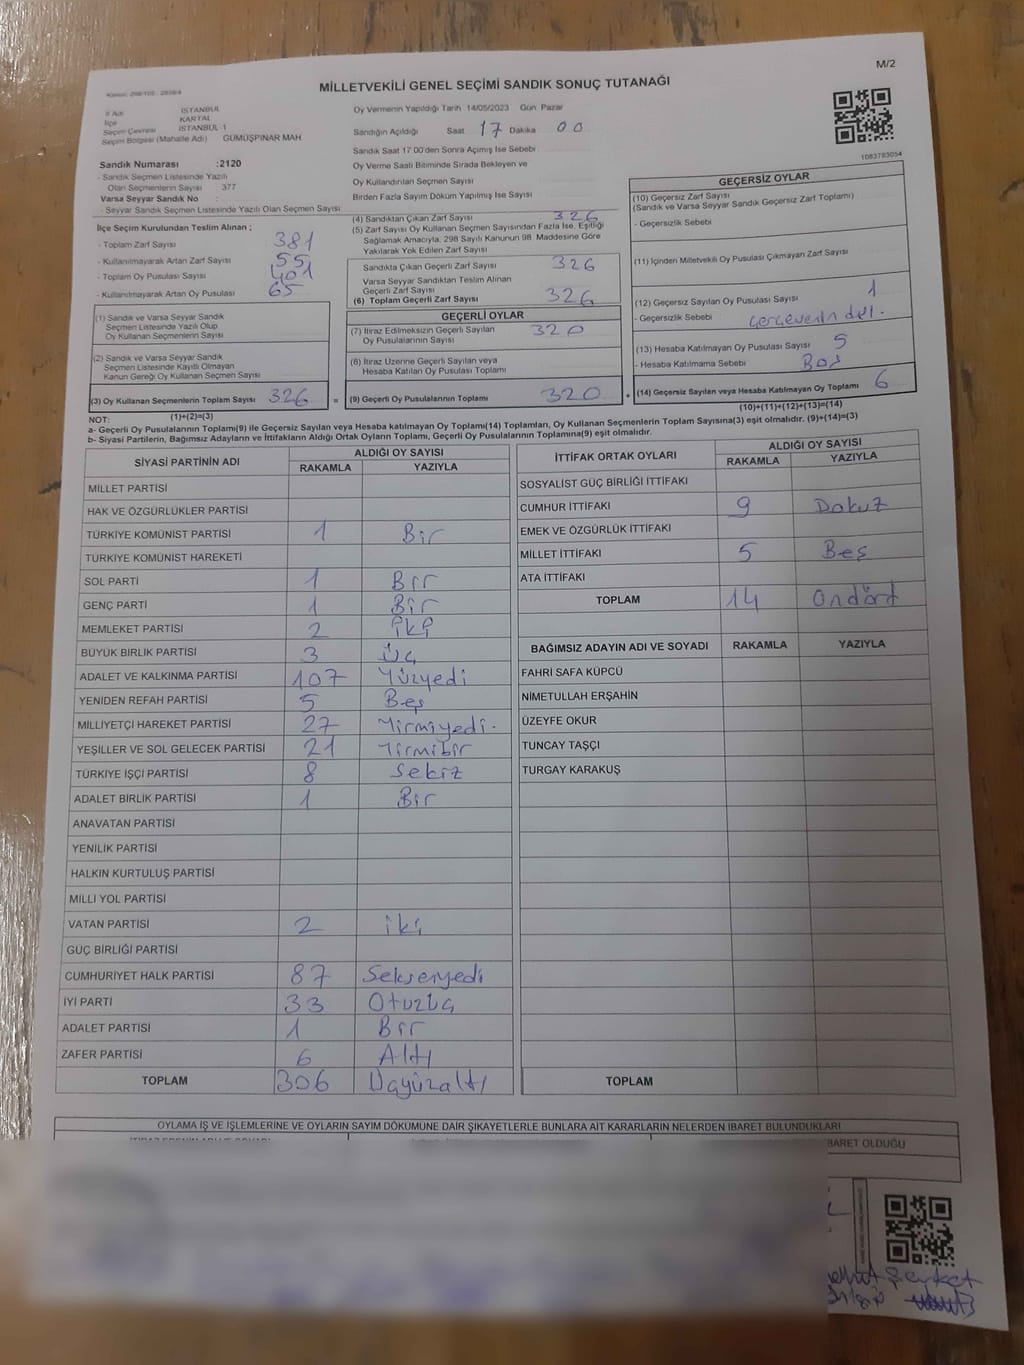 M/2
MİLLETVEKİLİ GENEL SEÇİMİ SANDIK SONUÇ TUTANAĞI
İl Adı İSTANBUL
İlçe KARTAL
Seçim Çevresi İSTANBUL-1
Seçim Bölgesi (Mahalle Adı) GÜMÜŞPINAR MAH
Sandık Numarası :2120
- Sandık Seçmen Listesinde Yazılı
Olan Seçmenlerin Sayısı 377
Varsa Seyyar Sandık No :
- Seyyar Sandık Seçmen Listesinde Yazılı Olan Seçmen Sayısı
İlçe Seçim Kurulundan Teslim Alınan ;
- Toplam Zarf Sayısı 381
- Kullanılmayarak Artan Zarf Sayısı 55
- Toplam Oy Pusulası Sayısı 401
- Kullanılmayarak Artan Oy Pusulası 65
(1) Sandık ve Varsa Seyyar Sandık
Seçmen Listesinde Yazılı Olup
Oy Kullanan Seçmenlerin Sayısı
(2) Sandık ve Varsa Seyyar Sandık
Seçmen Listesinde Kayıtlı Olmayan
Kanun Gereği Oy Kullanan Seçmen Sayısı
(3) Oy Kullanan Seçmenlerin Toplam Sayısı 326 =
Oy Vermenin Yapıldığı Tarih 14/05/2023 Gün: Pazar
Sandığın Açıldığı Saat 17 Dakika 00
Sandık Saat 17 00'den Sonra Açılmış İse Sebebi
Oy Verme Saati Bitiminde Sırada Bekleyen ve
Oy Kullandırılan Seçmen Sayısı
Birden Fazla Sayım Döküm Yapılmış İse Sayısı
(4) Sandıktan Çıkan Zarf Sayısı 326
(5) Zarf Sayısı Oy Kullanan Seçmen Sayısından Fazla İse, Eşitliği
Sağlamak Amacıyla, 298 Sayılı Kanunun 98. Maddesine Göre
Yakılarak Yok Edilen Zarf Sayısı
Sandıkta Çıkan Geçerli Zarf Sayısı 326
Varsa Seyyar Sandıktan Teslim Alınan
Geçerli Zarf Sayısı
(6) Toplam Geçerli Zarf Sayısı 326
GEÇERLİ OYLAR
(7) İtiraz Edilmeksizin Geçerli Sayılan
Oy Pusulalarının Sayısı 320
(8) İtiraz Üzerine Geçerli Sayılan veya
Hesaba Katılan Oy Pusulası Toplamı
(9) Geçerli Oy Pusulalarının Toplamı 320 +
1083783054
GEÇERSİZ OYLAR
(10) Geçersiz Zarf Sayısı
(Sandık ve Varsa Seyyar Sandık Geçersiz Zarf Toplamı)
- Geçersiz Sebebi
(11) İçinden Milletvekili Oy Pusulası Çıkmayan Zarf Sayısı
(12) Geçersiz Sayılan Oy Pusulası Sayısı 1
- Geçersizlik Sebebi
(13) Hesaba Katılmayan Oy Pusulası Sayısı 5
- Hesaba Katılmama Sebebi Boş
(14) Geçersiz Sayılan veya Hesaba Katılmayan Oy Toplamı 6
NOT: (1)+(2)=(3) (10)+(11)+(12)+(13)=(14)
a- Geçerli Oy Pusulalarının Toplamı(9) ile Geçersiz Sayılan veya Hesaba katılmayan Oy Toplamı(14) Toplamları, Oy Kullanan Seçmenlerin Toplam Sayısına(3) eşit olmalıdır. (9)+(14)=(3)
b- Siyasi Partilerin, Bağımsız Adayların ve İttifakların Aldığı Ortak Oyların Toplamı, Geçerli Oy Pusulalarının Toplamına(9) eşit olmalıdır.
SİYASİ PARTİNİN ADI ALDIĞI OY SAYISI
RAKAMLA YAZIYLA
MİLLET PARTİSİ
HAK VE ÖZGÜRLÜKLER PARTİSİ
TÜRKİYE KOMÜNİST PARTİSİ 1 Bir
TÜRKİYE KOMÜNİST HAREKETİ
SOL PARTİ 1 Bir
GENÇ PARTİ 1 Bir
MEMLEKET PARTİSİ 2 İki
BÜYÜK BİRLİK PARTİSİ 3 Üç
ADALET VE KALKINMA PARTİSİ 107 Yüzyedi
YENİDEN REFAH PARTİSİ 5 Beş
MİLLİYETÇİ HAREKET PARTİSİ 27 Yirmiyedi.
YEŞİLLER VE SOL GELECEK PARTİSİ 21 Yirmibir
TÜRKİYE İŞÇİ PARTİSİ 8 Sekiz
ADALET BİRLİK PARTİSİ 1 Bir
ANAVATAN PARTİSİ
YENİLİK PARTİSİ
HALKIN KURTULUŞ PARTİSİ
MİLLİ YOL PARTİSİ
VATAN PARTİSİ 2 iki
GÜÇ BİRLİĞİ PARTİSİ
CUMHURİYET HALK PARTİSİ 87 Seksenyedi
İYİ PARTİ 33 Otuzüç
ADALET PARTİSİ 1 Bir
ZAFER PARTİSİ 6 Altı
TOPLAM 306 Üçyüzaltı
İTTİFAK ORTAK OYLARI ALDIĞI OY SAYISI
RAKAMLA YAZIYLA
SOSYALİST GÜÇ BİRLİĞİ İTTİFAKI
CUMHUR İTTİFAKI 9 Dokuz
EMEK VE ÖZGÜRLÜK İTTİFAKI
MİLLET İTTİFAKI 5 Beş
ATA İTTİFAKI
TOPLAM 14 Ondört
BAĞIMSIZ ADAYIN ADI VE SOYADI RAKAMLA YAZIYLA
FAHRİ SAFA KÜPCÜ
NİMETULLAH ERŞAHİN
ÜZEYFE OKUR
TUNCAY TAŞÇI
TURGAY KARAKUŞ
TOPLAM
OYLAMA İŞ VE İŞLEMLERİNE VE OYLARIN SAYIM DÖKÜMÜNE DAİR ŞİKAYETLERLE BUNLARA AİT KARARLARIN NELERDEN İBARET BULUNDUKLARI
İBARET OLDUĞU
Şevket